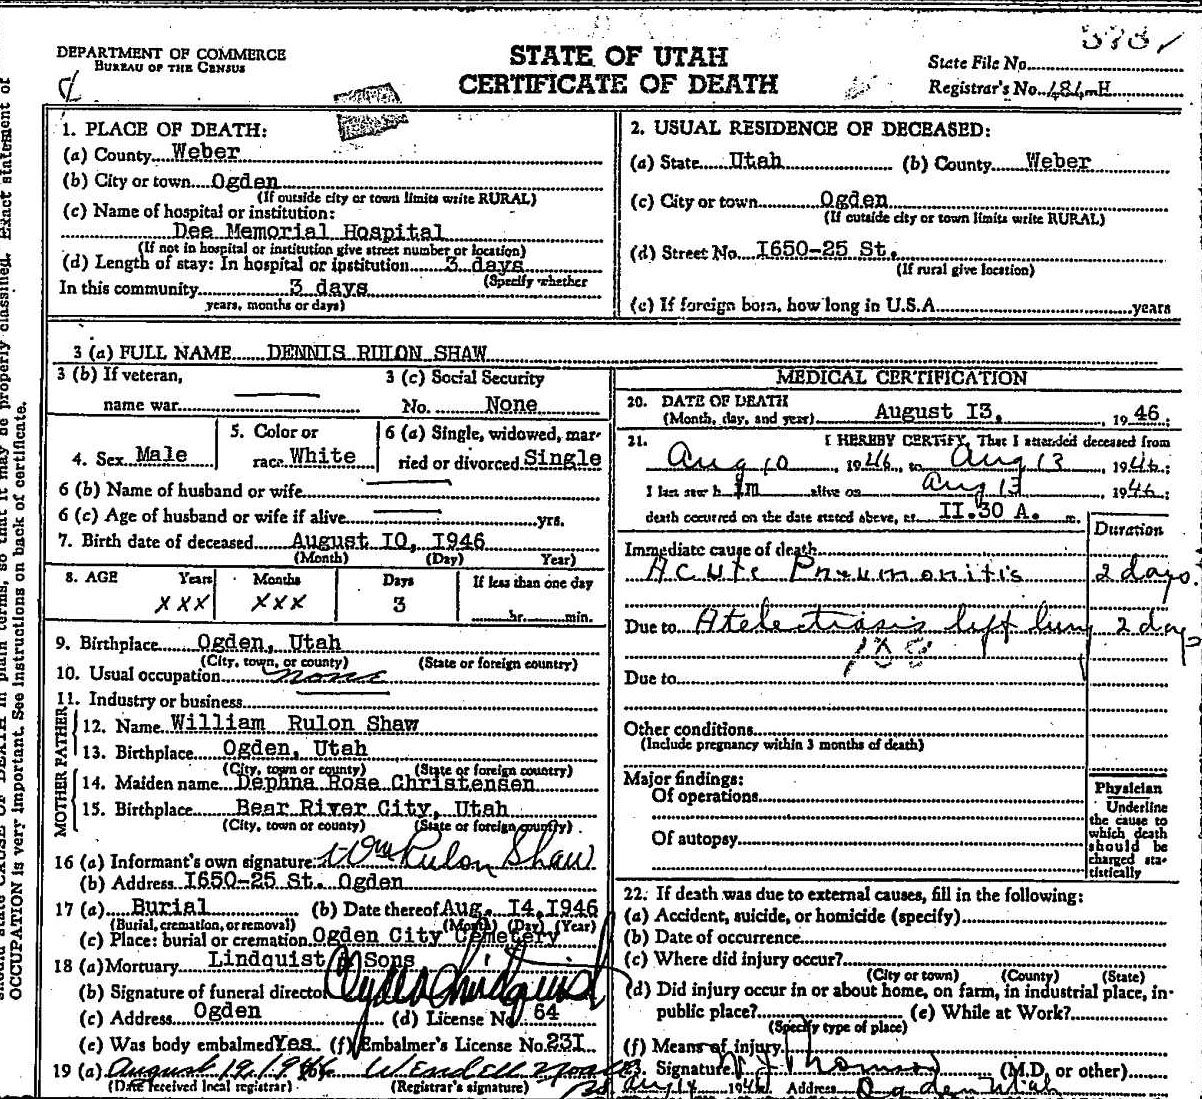 DEPARTMENT OF COMMERCE
BUREAU OF THE CENSUS
STATE OF UTAH
CERTIFICATE OF DEATH
State File No.
Registrar's No. 484-H
1. PLACE OF DEATH:
(a) County Weber
(b) City or town Ogden
(If outside city or town limits write RURAL)
(c) Name of hospital or institution:
Dee Memorial Hospital
(If not in hospital or institution give street number or location)
(d) Length of stay: In hospital or institution 3 days
(Specify whether
In this community 3 days
years, months or days)
2. USUAL RESIDENCE OF DECEASED:
(a) State Utah (b) County Weber
(c) City or town Ogden
(If outside city or town limits write RURAL)
(d) Street No. I650-25 St.
(If rural give location)
(e) If foreign born, how long in U.S.A. years
3 (a) FULL NAME DENNIS RULON SHAW
3 (b) If veteran, 3 (c) Social Security
name war No. None
4. Sex Male 5. Color or race White 6 (a) Single, widowed, married or divorced Single
6 (b) Name of husband or wife
6 (c) Age of husband or wife if alive yrs.
7. Birth date of deceased August I0, I946
(Month) (Day) Year)
8. AGE Years Months Days If less than one day
XXX XXX 3 hr. min.
9. Birthplace Ogden, Utah
(City, town, or county) (State or foreign country)
10. Usual occupation none
11. Industry or business
FATHER
12. Name William Rulon Shaw
13. Birthplace Ogden, Utah
(City, town or county) (State or foreign country)
MOTHER
14. Maiden name Dephna Rose Christensen
15. Birthplace Bear River City, Utah
(City, town or county) (State or foreign country)
16 (a) Informant's own signature Wm Rulon Shaw
(b) Address I650-25 St. Ogden
17 (a) Burial (b) Date thereof Aug. I4,I946
(Burial, cremation, or removal) (Month) (Day) (Year)
(c) Place: burial or cremation Ogden City Cemetery
18 (a) Mortuary Lindquist & Sons
(b) Signature of funeral director Clyde Lindquist
(c) Address Ogden (d) License No. 64
(e) Was body embalmed Yes. (f) Embalmer's License No. 23I
19 (a) August 19, 1946 Wendell
(Date received local registrar) (Registrar's signature)
MEDICAL CERTIFICATION
20. DATE OF DEATH
(Month, day, and year) August I3, 1946:
21. I HEREBY CERTIFY, That I attended deceased from
Aug 10, 1946 to Aug 13 1946:
I last saw him alive on Aug 13, 1946:
death occurred on the date stated above, at II.30 A. m.
Duration
Immediate cause of death
Acute Pneumonitis 2 days.
Due to Atelectiasis left lung 2 days
Due to
Other conditions
(Include pregnancy within 3 months of death)
Major findings:
Of operations
Of autopsy
Physician
Underline
the cause to
which death
should be
charged sta-
tistically
22. If death was due to external causes, fill in the following:
(a) Accident, suicide, or homicide (specify)
(b) Date of occurrence
(c) Where did injury occur?
(City or town) (County) (State)
(d) Did injury occur in or about home, on farm, in industrial place, in-
public place? (e) While at Work?
(Specify type of place)
(f) Means of injury
23. Signature Thomson (M.D. or other)
Aug 14 1946 Address Ogden Utah
OCCUPATION is very important. See instructions on back of certificate.